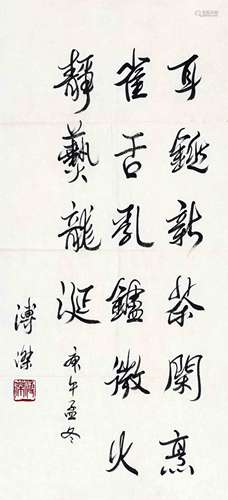 新茶閑烹
雀舌鑪微火
靜爇龍涎
庚午孟冬
溥傑